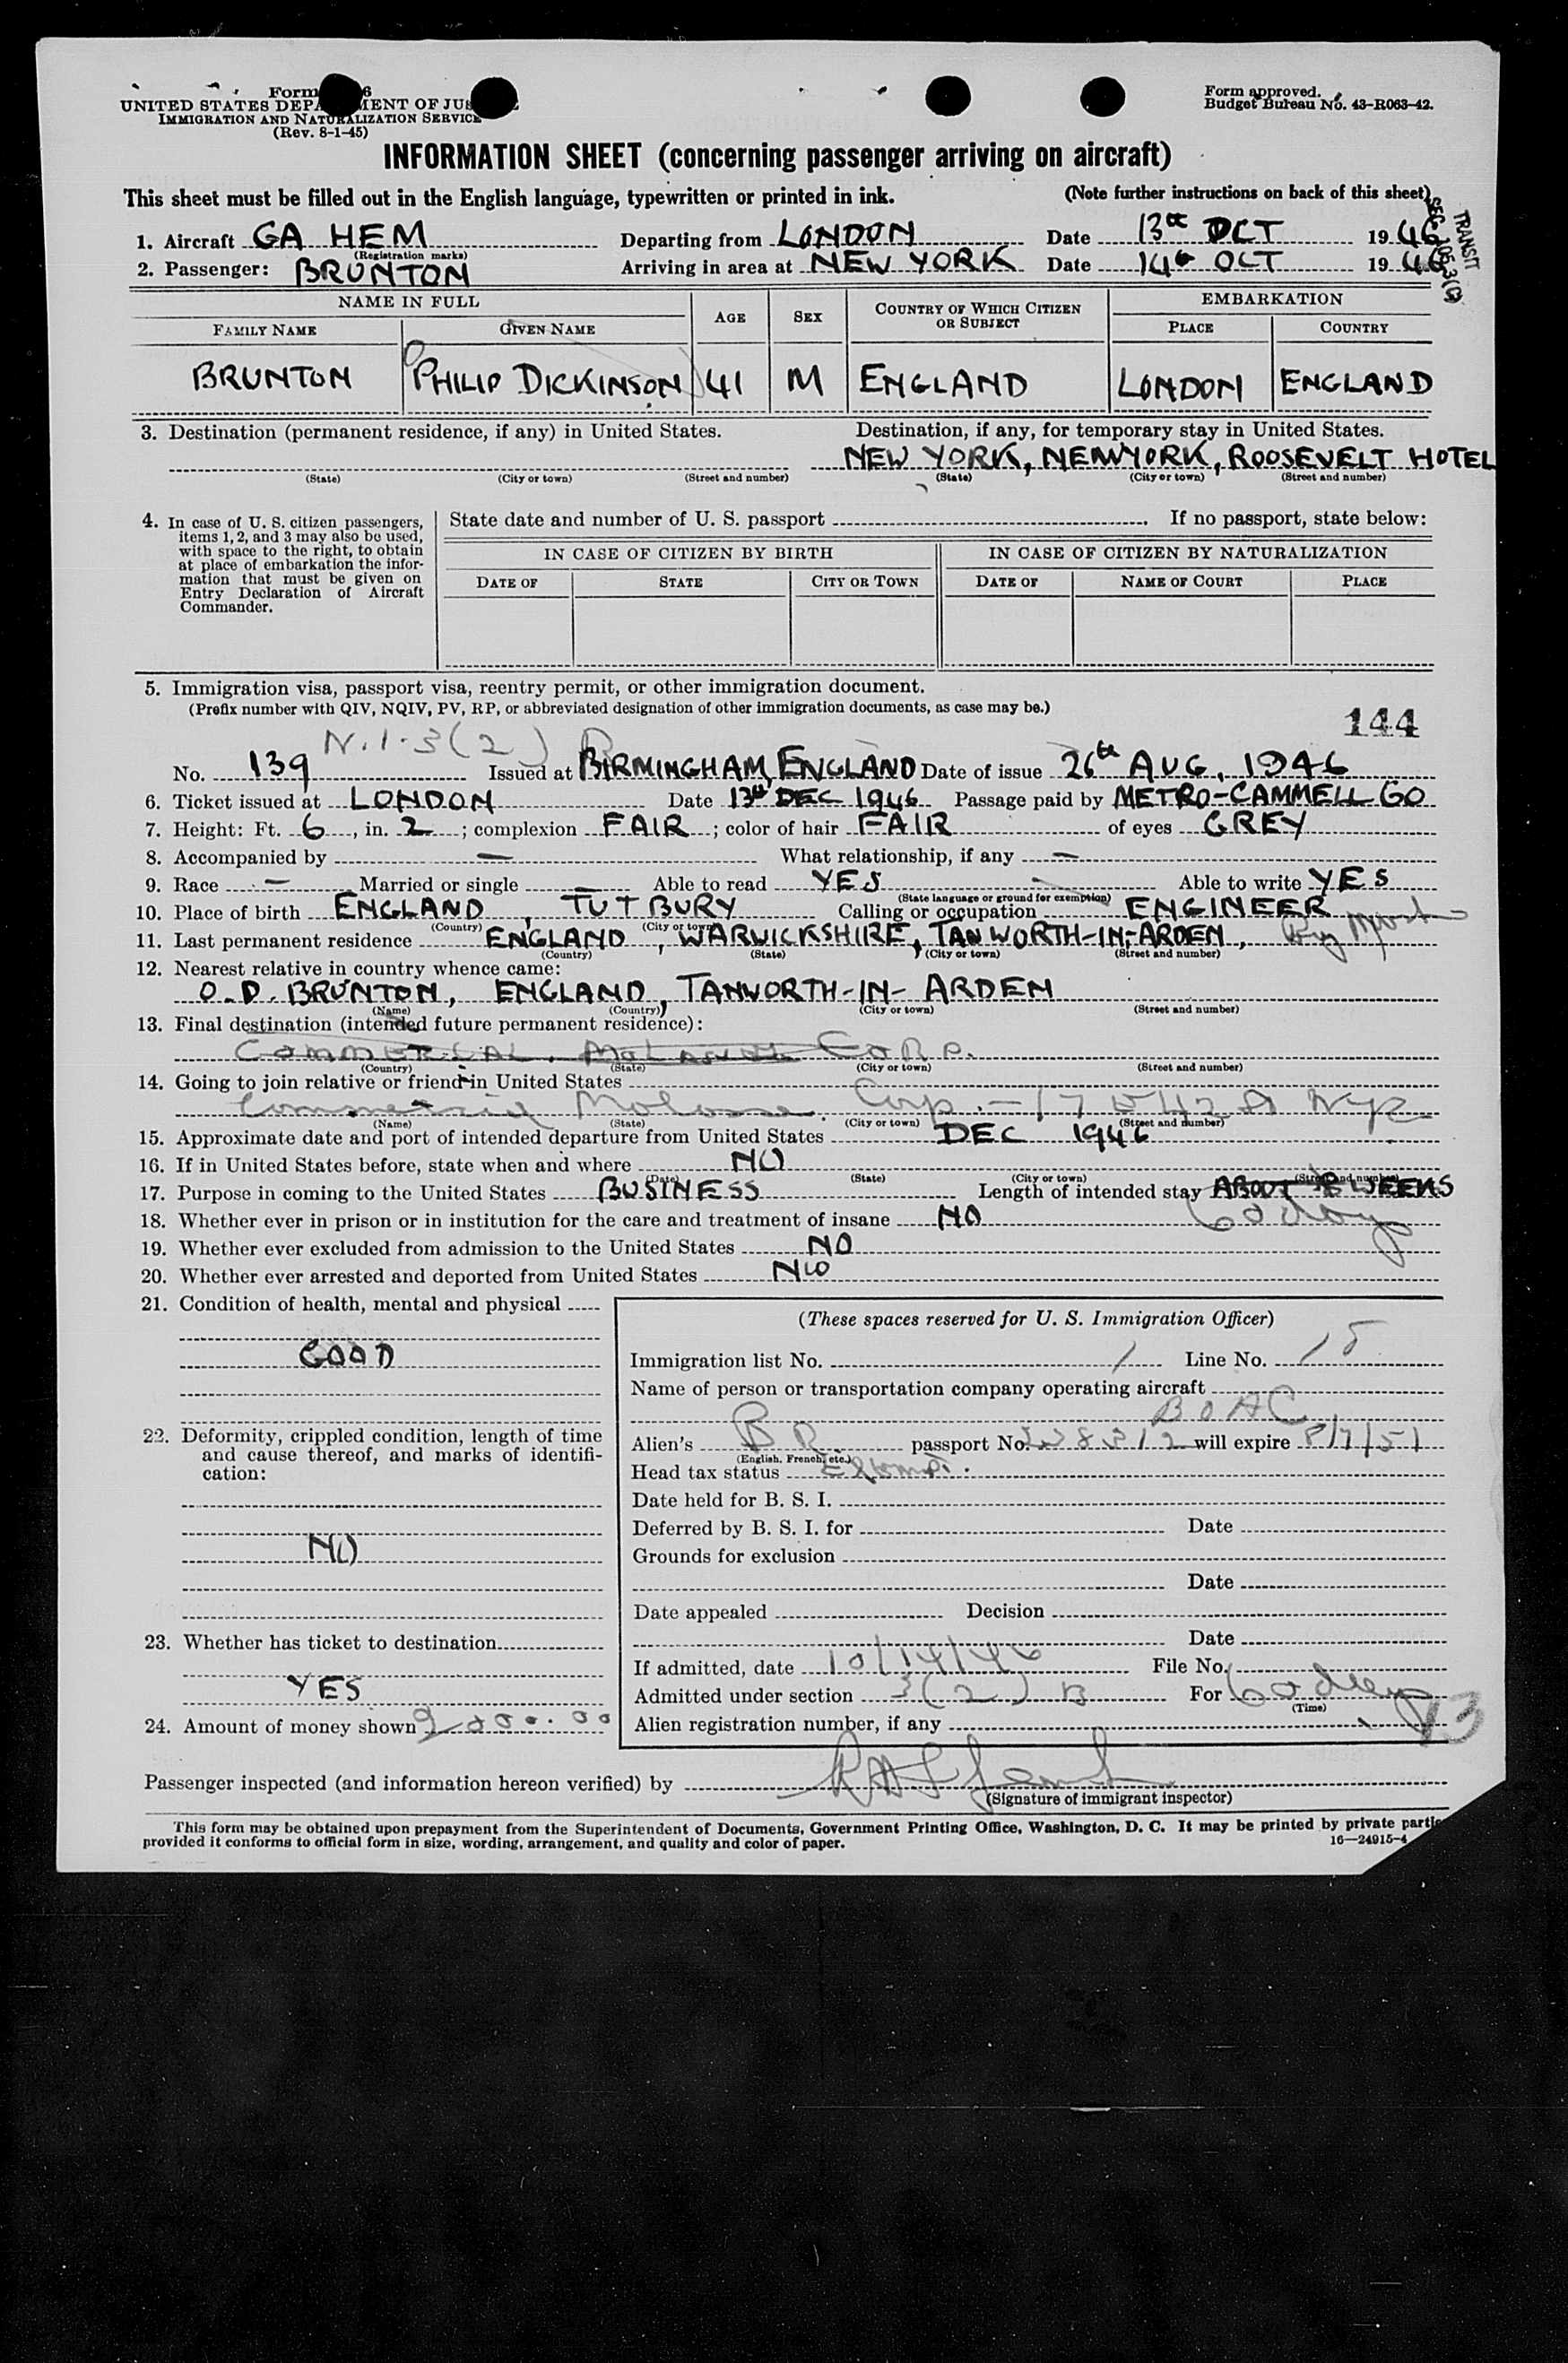 Form 6
UNITED STATES DEPA MENT OF JUS E
IMMIGRATION AND NATURALIZATION SERVICE
(Rev. 8-1-45)
Form approved.
Budget Bureau No. 43-R063-42.
INFORMATION SHEET (concerning passenger arriving on aircraft)
This sheet must be filled out in the English language, typewritten or printed in ink. (Note further instructions on back of this sheet)
TRANSIT
SEC 105.3(C)
1. Aircraft GA HEM Departing from LONDON Date 13th OCT 1946
(Registration marks)
2. Passenger: BRUNTON Arriving in area at NEW YORK Date 14th OCT 1946
NAME IN FULL AGE SEX COUNTRY OF WHICH CITIZEN OR SUBJECT EMBARKATION
FAMILY NAME GIVEN NAME PLACE COUNTRY
BRUNTON PHILIP DICKINSON 41 M ENGLAND LONDON ENGLAND
3. Destination (permanent residence, if any) in United States. Destination, if any, for temporary stay in United States.
NEW YORK, NEW YORK, ROOSEVELT HOTEL
(State) (City or town) (Street and number) (State) (City or town) (Street and number)
4. In case of U. S. citizen passengers,
items 1, 2, and 3 may also be used,
with space to the right, to obtain
at place of embarkation the infor-
mation that must be given on
Entry Declaration of Aircraft
Commander.
State date and number of U. S. passport If no passport, state below:
IN CASE OF CITIZEN BY BIRTH IN CASE OF CITIZEN BY NATURALIZATION
DATE OF STATE CITY OR TOWN DATE OF NAME OF COURT PLACE
5. Immigration visa, passport visa, reentry permit, or other immigration document.
(Prefix number with QIV, NQIV, PV, RP, or abbreviated designation of other immigration documents, as case may be.)
144
N.I-3(2)
No. 139 Issued at BIRMINGHAM, ENGLAND Date of issue 26th AUG, 1946
6. Ticket issued at LONDON Date 13th DEC 1946 Passage paid by METRO-CAMMELL CO
7. Height: Ft. 6, in. 2; complexion FAIR; color of hair FAIR of eyes GREY
8. Accompanied by — What relationship, if any —
9. Race — Married or single — Able to read YES — Able to write YES
(State language or ground for exemption)
10. Place of birth ENGLAND, TUTBURY Calling or occupation ENGINEER
(Country) (City or town)
11. Last permanent residence ENGLAND, WARWICKSHIRE, TANWORTH-IN-ARDEN,
(Country) (State) (City or town) (Street and number)
12. Nearest relative in country whence came:
O.D. BRUNTON, ENGLAND, TANWORTH-IN-ARDEN
(Name) (Country) (City or town) (Street and number)
13. Final destination (intended future permanent residence):
COMMERCIAL MOLASSES CORP.
(Country) (State) (City or town) (Street and number)
14. Going to join relative or friend in United States
Commercial Molasses Corp. - 17 E 42 St NYC
(Name) (State) (City or town) (Street and number)
15. Approximate date and port of intended departure from United States DEC 1946
16. If in United States before, state when and where NO
(Date) (State) (City or town) (Street and number)
17. Purpose in coming to the United States BUSINESS Length of intended stay ABOUT 8 WEEKS
18. Whether ever in prison or in institution for the care and treatment of insane NO 60 days
19. Whether ever excluded from admission to the United States NO
20. Whether ever arrested and deported from United States NO
21. Condition of health, mental and physical
GOOD
22. Deformity, crippled condition, length of time
and cause thereof, and marks of identifi-
cation:
NO
23. Whether has ticket to destination
YES
24. Amount of money shown 2000.00
(These spaces reserved for U. S. Immigration Officer)
Immigration list No. 1 Line No. 15
Name of person or transportation company operating aircraft
BOAC
Alien's BR passport No. will expire 8/7/51
(English, French, etc.)
Head tax status Exempt.
Date held for B. S. I.
Deferred by B. S. I. for Date
Grounds for exclusion
Date
Date appealed Decision
Date
If admitted, date 10/14/46 File No.
Admitted under section 3(2) B For 60 days
(Time)
Alien registration number, if any
Passenger inspected (and information hereon verified) by
(Signature of immigrant inspector)
This form may be obtained upon prepayment from the Superintendent of Documents, Government Printing Office, Washington, D. C. It may be printed by private partie
provided it conforms to official form in size, wording, arrangement, and quality and color of paper. 16—24915-4